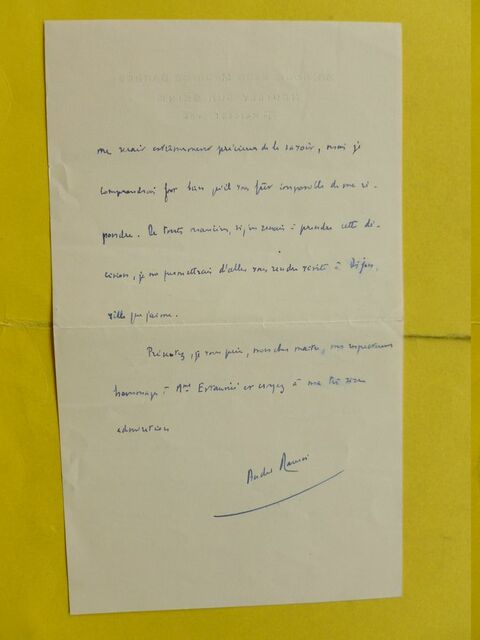 me serait extrêmement précieux de le savoir, mais je
comprendrai fort bien qu'il vous fût impossible de me ré-
pondre. De toute manière, si j'en venais à prendre cette dé-
cision, je me permettrais d'aller vous rendre visite à Dijon,
ville que j'aime.
Présentez, je vous prie, mon cher maître, mes respectueux
hommages à Mme Estaunié et croyez à ma très
admiration
André Maurois